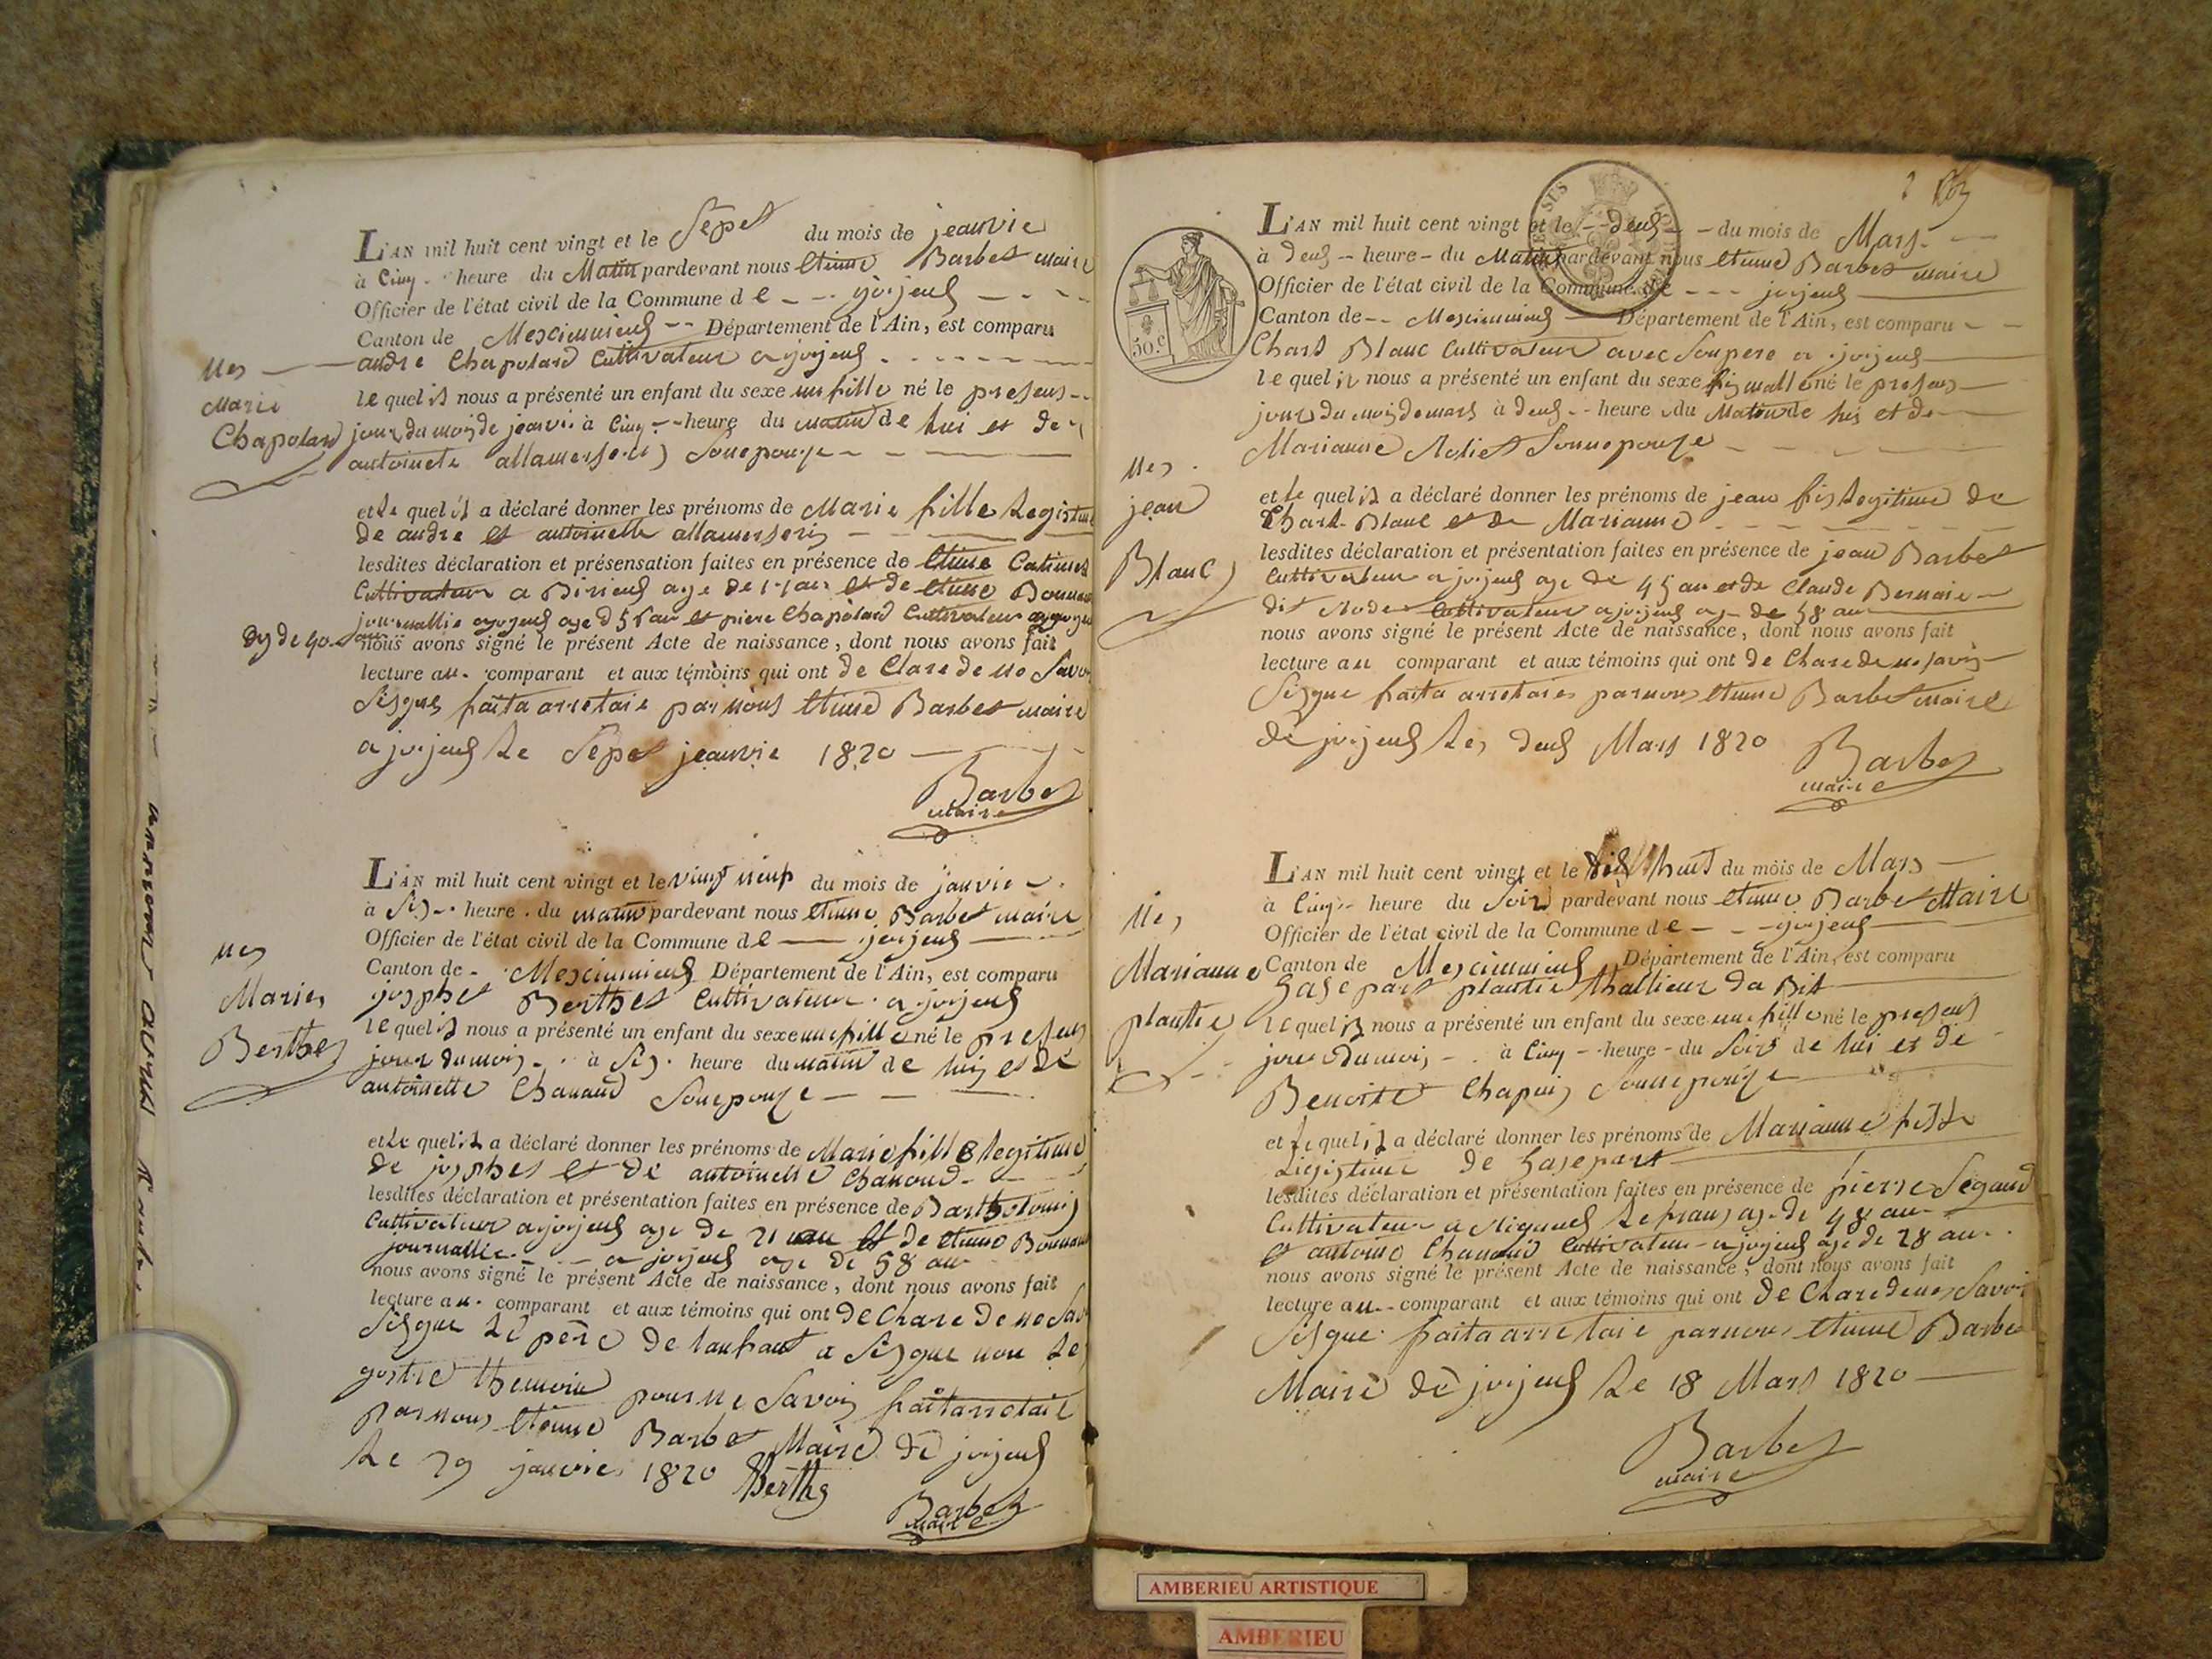 L'AN mil huit cent vingt et le Sepet du mois de jeanvie
à Cinq heure du Matin pardevant nous Etiene Barbet maire
Officier de l'état civil de la Commune de joijeux
Canton de Meximieux Département de l'Ain, est comparu
andre Chapolard Cultivateur a joijeux
Nes
Marie
Chapolard
le quel il nous a présenté un enfant du sexe un fille né le presens
jour du mois de jeanvie à Cinq heure du matin de lui et de
antoinete Sonepouse
et le quel il a déclaré donner les prénoms de Marie fille Legistime
de andre et antoinette
lesdites déclaration et présensation faites en présence de Etiene
Cultivateur a Birieux age de ans et de Etiene
journallie a joijeux age d 56 an et piere Chapolard Cultivateur a joijeux
age de 40 an
nous avons signé le présent Acte de naissance, dont nous avons fait
lecture au comparant et aux témoins qui ont de Clare de no Savoi
Signe fait a arretaie par nous Etiene Barbet maire
a joijeux Le Sepet jeanvie 1820
Barbet
maire
L'AN mil huit cent vingt et le vingt neuf du mois de janvie
à Sis heure du matin pardevant nous Etiene Barbet maire
Officier de l'état civil de la Commune de joijeux
Canton de Meximieux Département de l'Ain, est comparu
josphet Berthet Cultivateur a joijeux
Nes
Marie
Berthet
le quel il nous a présenté un enfant du sexe une fille né le presens
jour du mois à Sis heure du matin de lui et de
antoinette Chanaud Sonepouse
et le quel il a déclaré donner les prénoms de Marie fille legitime
de josphet et de antoinette Chanoud
lesdites déclaration et présentation faites en présence de
Cultivateur a joijeux age de 21 an et de Etiene
journallie a joijeux age de 58 an
nous avons signé le présent Acte de naissance, dont nous avons fait
lecture au comparant et aux témoins qui ont de Clare de no Sav
Signe Le père de lanfant a Signe non Le
themoin pour ne Savoi fait arretaie
par nous Etiene Barbet Maire de joijeux
Le 29 janvie 1820 Berthet
Barbet
maire
L'AN mil huit cent vingt et le deux du mois de Mars
à deux heure du Matin pardevant nous Etiene Barbet maire
Officier de l'état civil de la Commune de joijeux
Canton de Meximieux Département de l'Ain, est comparu
50.c
Charl Blanc Cultivateur avec Sonpere a joijeux
le quel il nous a présenté un enfant du sexe fis malle né le presens
jour du mois de mars à deux heure du Matin de lui et de
Marianne Sonnepouse
Nes
jean
Blanc
et le quel il a déclaré donner les prénoms de jean fis Legitime de
Charl Blanc et de Marianne
lesdites déclaration et présentation faites en présence de jean Barbet
Cultivateur a joijeux age de 45 an et de Claude Bernair
dit Cultivateur a joijeux age de 58 an
nous avons signé le présent Acte de naissance, dont nous avons fait
lecture au comparant et aux témoins qui ont de Clare de no savoi
Signe fait a arretaie par nous Etiene Barbet maire
de joijeux Le deux Mars 1820
Barbet
maire
L'AN mil huit cent vingt et le dix huit du mois de Mars
à Cinq heure du Soir pardevant nous Etiene Barbet Maire
Officier de l'état civil de la Commune de joijeux
Canton de Meximieux Département de l'Ain, est comparu
Gasepart plantie thallieur da Bit
Nes
Marianne
plantie
le quel il nous a présenté un enfant du sexe une fille né le presens
jour du mois à Cinq heure du Soir de lui et de
Benoite Chapuis Sonnepouse
et le quel il a déclaré donner les prénoms de Marianne fille
Legistime de Gasepart
lesdites déclaration et présentation faites en présence de pierre Segaud
Cultivateur a age de 48 an
et antoine Chanaud Cultivateur a joijeux age de 28 an
nous avons signé le présent Acte de naissance, dont nous avons fait
lecture au comparant et aux témoins qui ont de Clare de no Savoi
Signe fait a arretaie par nous Etiene Barbe
Maire de joijeux Le 18 Mars 1820
Barbet
maire
AMBERIEU ARTISTIQUE
AMBERIEU